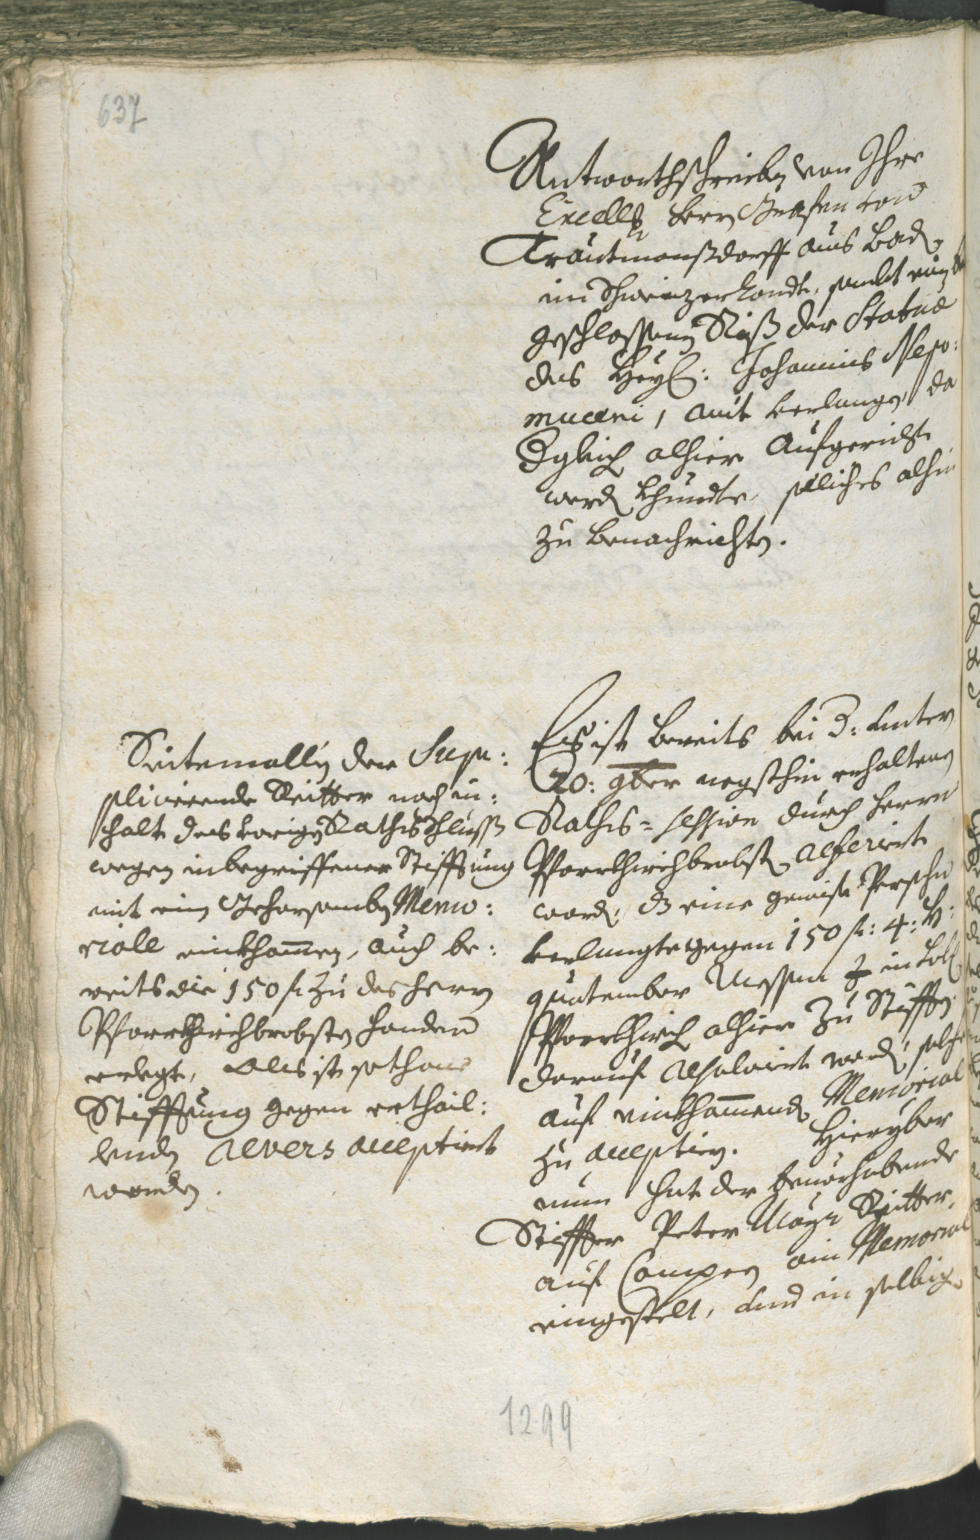 637
Antworthschreiben von Ihro
Excellz Herrn Grafen von
Trautmanßdorff aus Baden
im Schweizerlandt, sambt ein
geschlossenen Riß der Statuæ
des Heyl: Johannis Nepo:
muceni, mit verlangen, da
dgleich alhier aufgericht
werden khundte, solliches alhin
zu benachrichten.
Seitemallen der Sup:
plicierende Reitter nach in:
halt des vorigen Rathsschluss
wegen inbegriffener Stifftung
mit ein gehorsamben Memo:
riale einkhommen, auch be:
reits die 150 fl zu des Herrn
Pfarrkhirchbrobsten handen
erlegt, Als ist sothane
Stifftung gegen erthail:
lenden Revers acceptiert
worden.
Es ist bereits bei d: unter
20: 9ber negsthin erhaltenen
Raths=session durch Herrn
Pfarrkhirchbrobsten referiert
worden, dz eine gewise Persohn
verlangte gegen 150 fl: 4:
quatember Messen in
Pfarrkhirch alhier zu Stifften
darauf resolviert worden, solche
auf einkhommendes Memorial
zu acceptiern. Hieryber
nun hat der bevorhabende
Stiffter Peter Mayr Reitter,
auf Campen ein Memorial
eingestelt, und in selbigen
1299